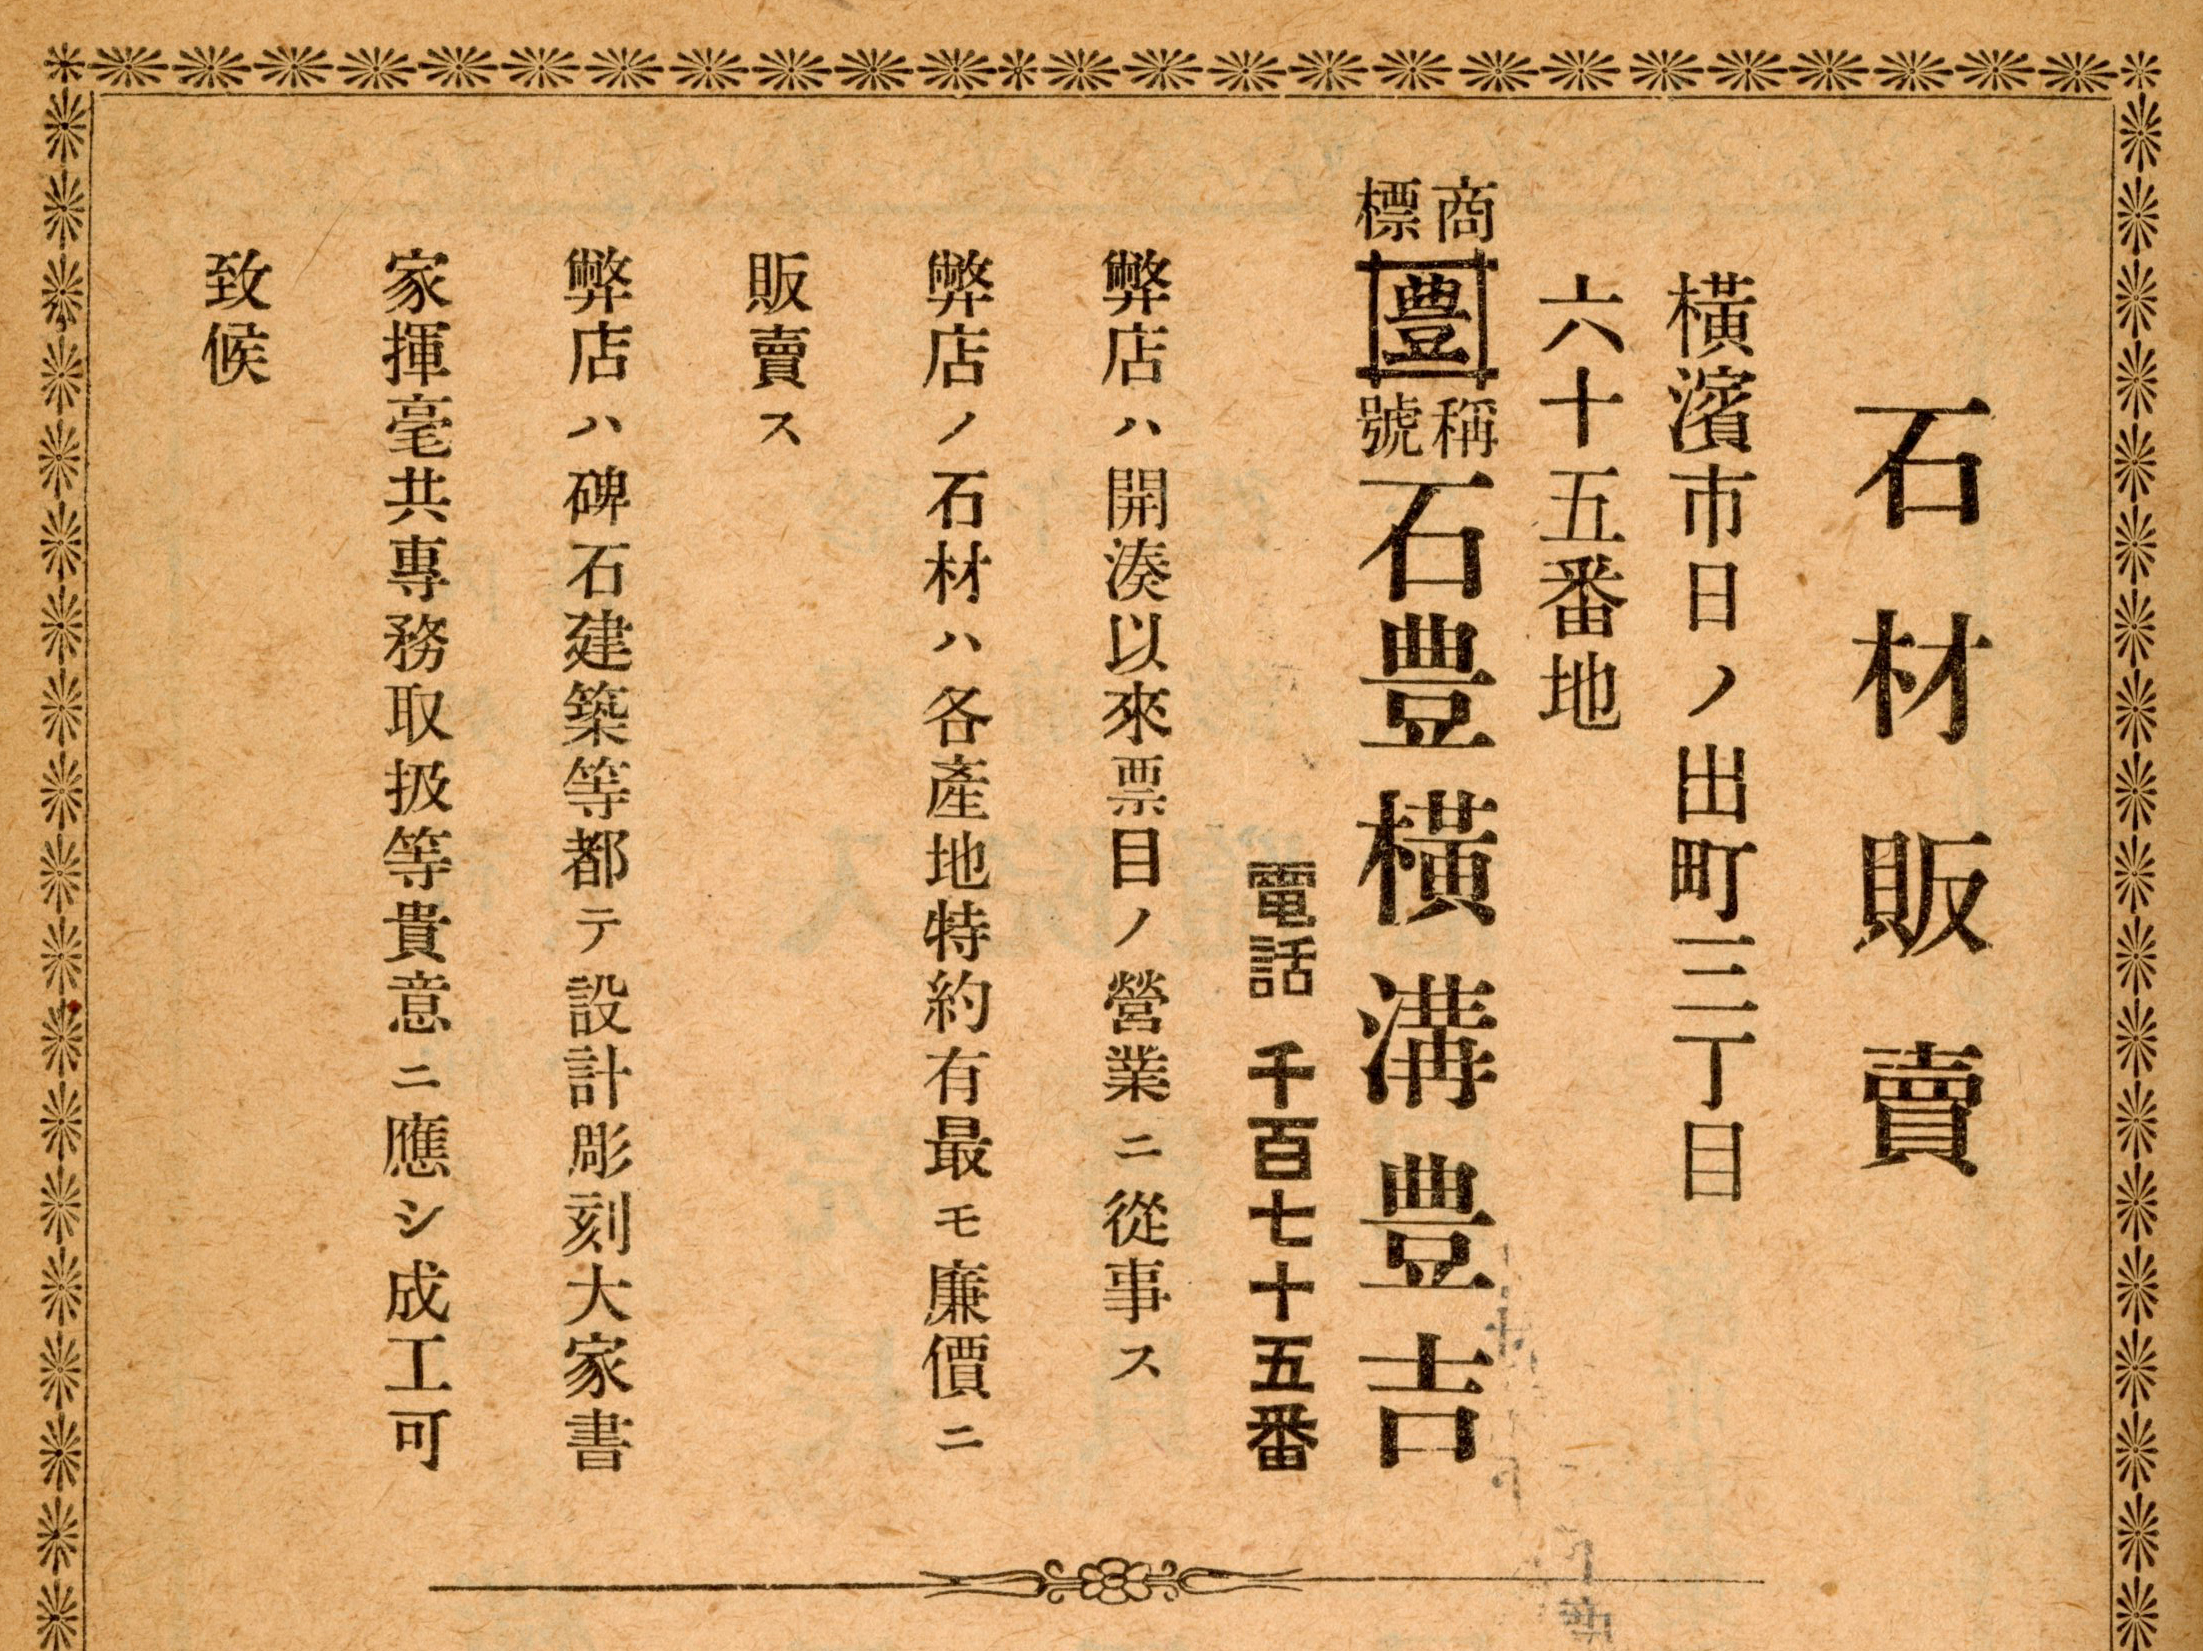 石材販賣
橫濱市日ノ出町三丁目
六十五番地
商標 豊 稱號 石豊 橫溝豊吉
電話 千百七十五番
弊店ハ開湊以來票目ノ營業ニ從事ス
弊店ノ石材ハ各產地特約有最モ廉價ニ
販賣ス
弊店ハ碑石建築等都テ設計彫刻大家書
家揮毫共專務取扱等貴意ニ應シ成工可
致候